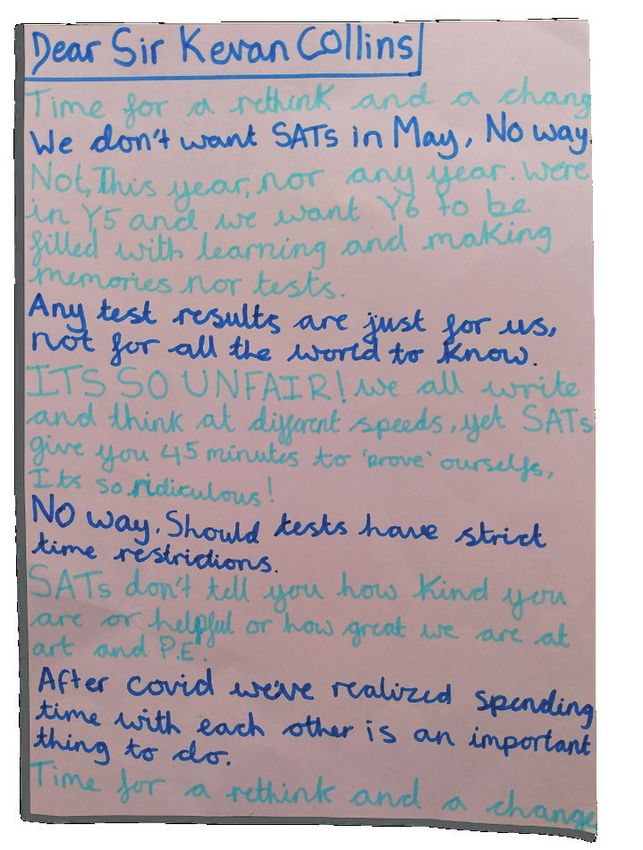 Dear Sir Kevan Collins
Time for a rethink and a chang
We don't want SATs in May, No way.
Not, This year, nor any year. Were
in Y5 and we want Y6 to be
filled with learning and making
memories nor tests.
Any test results are just for us,
not for all the world to know.
ITS SO UNFAIR! we all write
and think at different speeds, yet SATs
give you 45 minutes to 'prove' ourselfs,
Its so ridiculous!
No way. Should tests have strict
time restrictions.
SATs don't tell you how kind you
are or helpful or how great we are at
art and P.E.
After covid we've realized spending
time with each other is an important
thing to do.
Time for a rethink and a change